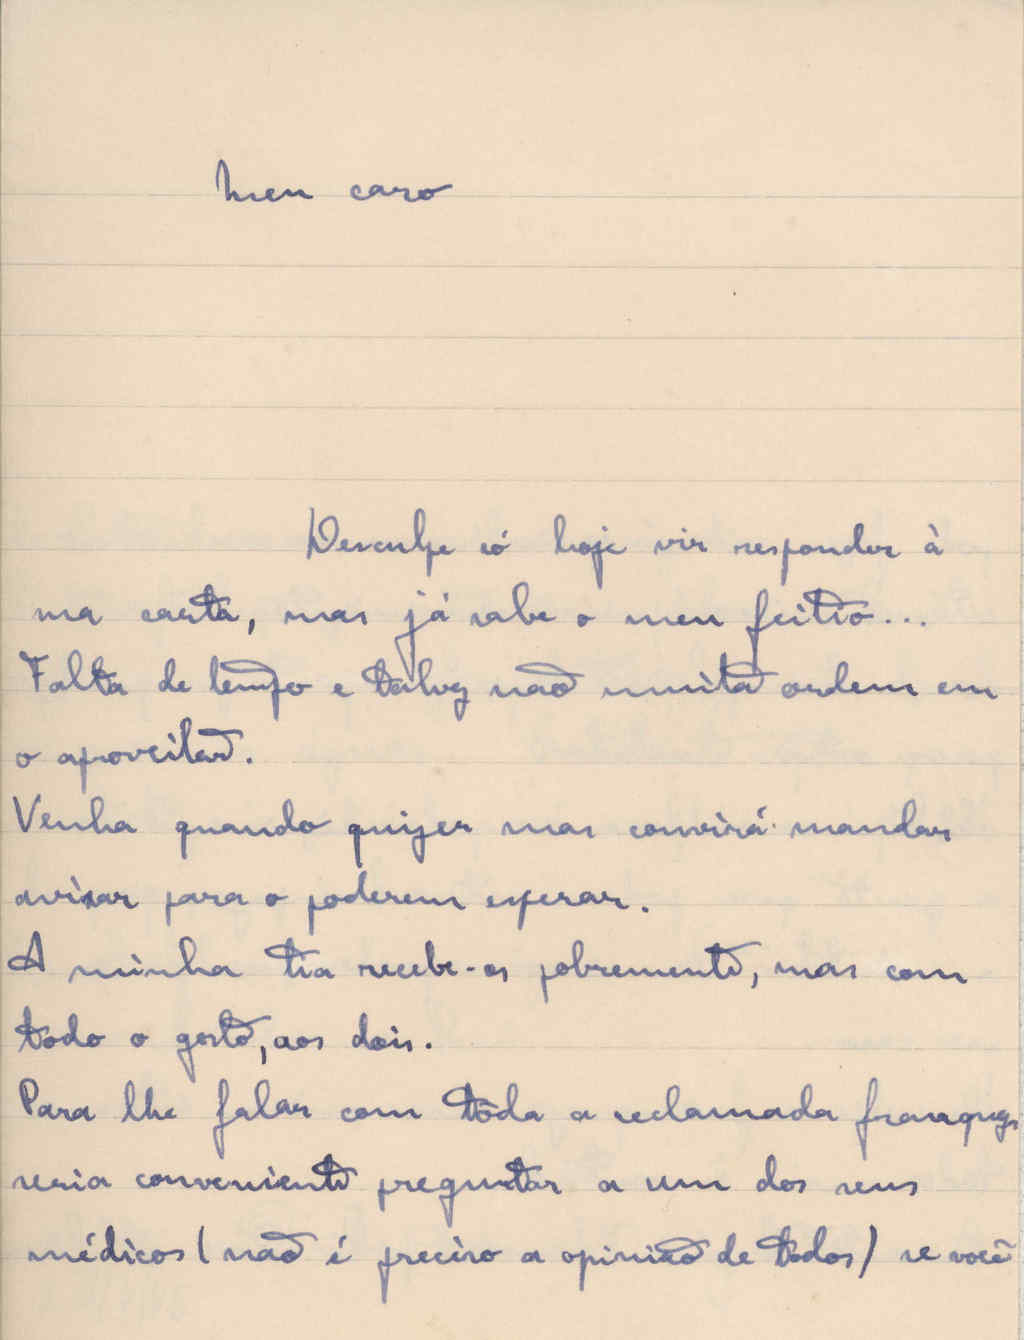 Meu caro
Desculpe só hoje vir responder à
sua carta, mas já sabe o meu feitio...
Falta de tempo e talvez não muita ordem em
o aproveitar.
Venha quando quizer mas convirá mandar
avisar para o poderem esperar.
A minha tia recebe-os pobremente, mas com
todo o gosto, aos dois.
Para lhe falar com tôda a reclamada franqueza
seria conveniente preguntar a um dos seus
médicos (não é preciso a opinião de todos) se você